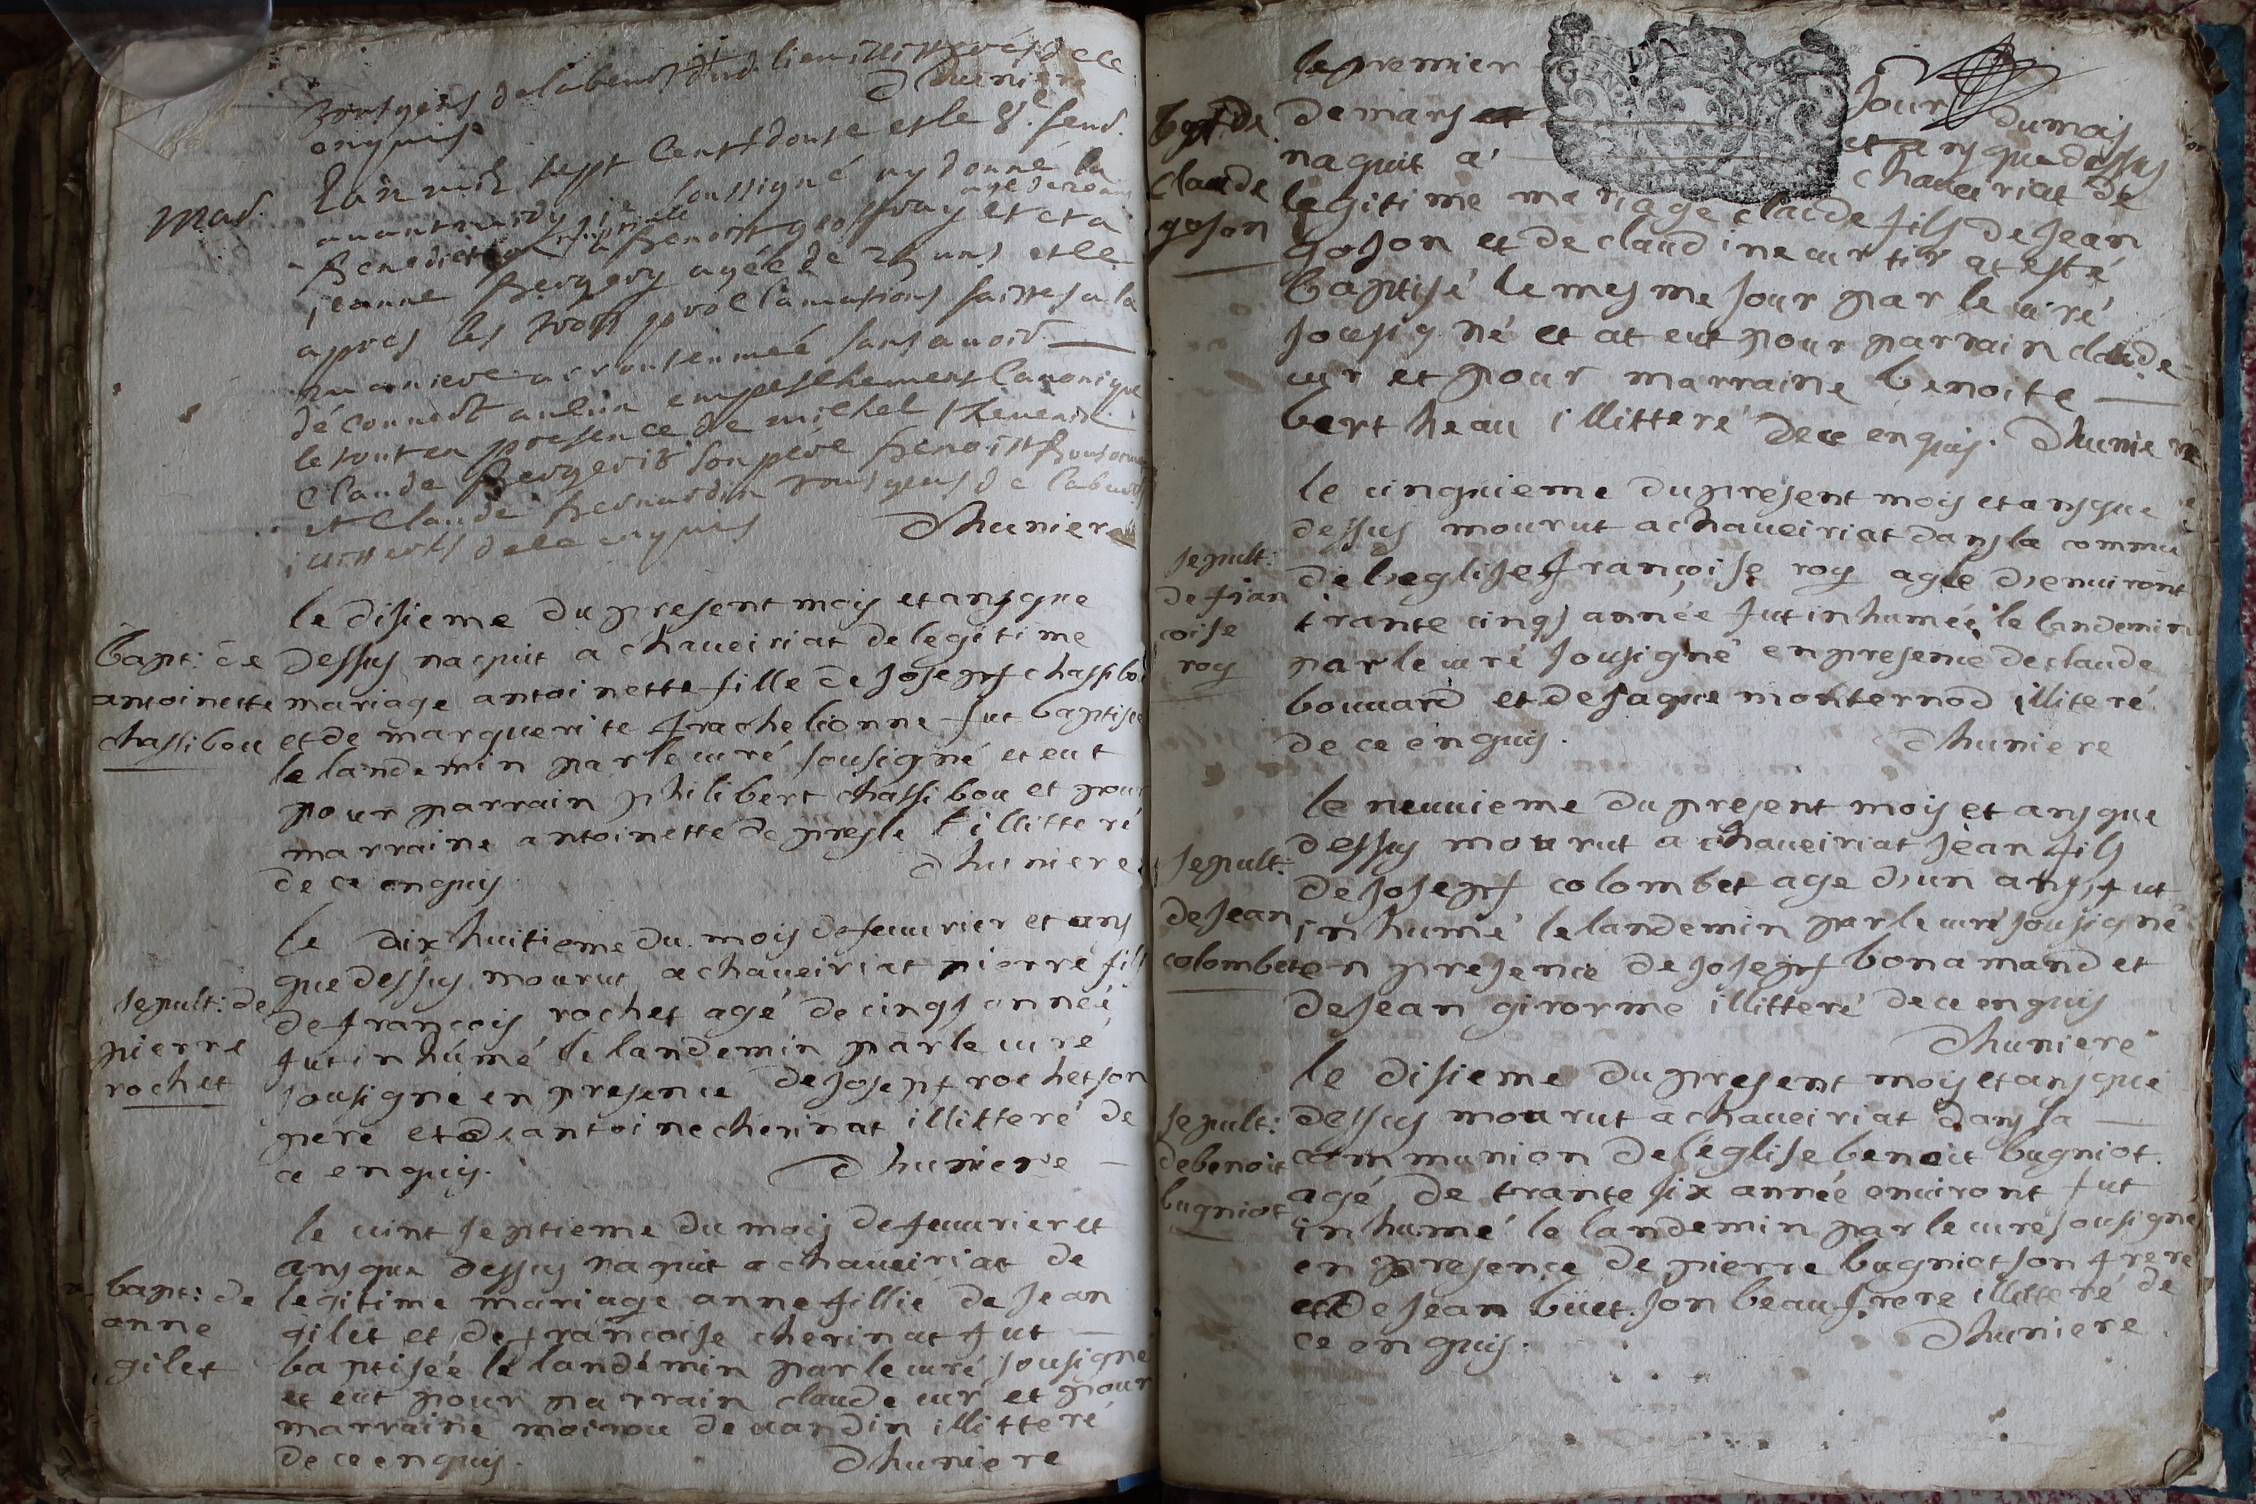 enquis
Dhuniere
Mad.
L'an mil sept cent douse et le 8e. feud.
avant mardy je soussigné ay donné la
Benediction nuptiale a Benoist geoffray et et a
jeanne Bergery agée de 25 ans et le
apres les trois proclamations faittes a la
maniere accoutumeé sans avoir
déconnect aulun empeschement Canonique
le tout en presence de michel
Claude Bergerir son pere Benoist
et Claude Bernardin tous gens de labeur
illitterés de ce enquis Dhuniere
bapt: de
antoinette
chassibou
le disieme du present mois et ans que
dessus naquit a chaveiriat de legitime
mariage antoinette fille de Josepf chassibou
et de marguerite frachelionne fut baptisee
le landemin par le curé sousigné et eut
pour parrain philibert chassibou et pour
marraine antoinette de presle illitteré
de ce enquis Dhuniere
sepult: de
pierre
rochet
le dix huitieme du mois de feuvrier et ans
que dessus mourut a chaveiriat pierre fils
de francois rochet agé de cinqs anneé
fut inhumé le landemin par le curé
sousigné en presence de Josepf rochet son
pere et d'antoine cherinat illitteré de
ce enquis. Dhuniere
bapt: de
anne
gilet
le vint septieme du mois de feuvrier et
ans que dessus naquit a chaveiriat de
legitime mariage anne fillie de Jean
gilet et de francoise cherinat fut
baptisée le landemin par le curé sousigné
et eut pour parrain claude cur et pour
marraine de vandin illitteré
de ce enquis. Dhuniere
bapt. de
Claude
goson
le premier Jour du mois
de mars et ans que dessus
naquit a chaveiriat de
legitime mariage claude fils de Jean
goson et de claudine curtir at esté
baptisé le mesme Jour par le curé
sousigné et at eut pour parrain claude
cur et pour marraine benoite
bertheau illitteré de ce enquis. Dhuniere
sepult:
de fran
coise
roy
le cinquieme du present mois et ans que
dessus mourut a chaveiriat dans la commu
de l'eglise françoise roy agée d'environt
trante cinqs année fut inhumée le landemin
par le curé sousigné en presence de claude
bouvard et de Jaque monternod illiteré
de ce enquis. Dhuniere
sepult:
de Jean
colombet
le neuvieme du present mois et ans que
dessus mourut a chaveiriat Jean fils
de Josepf colombet age d'un ans, fut
inhumé le landemin par le curé sousigné
en presence de Josepf bonamand et
de Jean girorme illitteré de ce enquis
Dhuniere
sepult:
de benoit
bugniot
le disieme du present mois et ans que
dessus mourut a chaveiriat dans la
communion de l'église benoit bugniot
agé de trante six année environt fut
inhumé le landemin par le curé sousigné
en presence de pierre bugniot son frere
et de Jean büet son beau frere illitteré de
ce enquis. Dhuniere